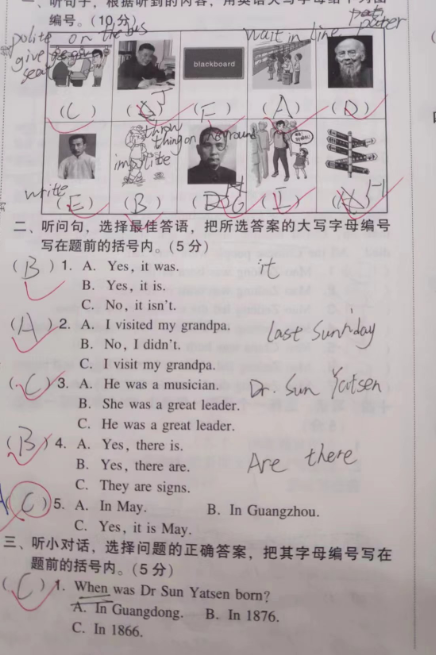 一、听句子，根据听到的内容，用英语大写字母给下列图
编号。(10 分)
polite on the bus wait in line
give
seat
blackboard
(C) (F) (A) (D)
throw
thing on ground
impolite
write
(E) (B) (I)
二、听问句，选择最佳答语，把所选答案的大写字母编号
写在题前的括号内。(5 分)
(B) 1. A. Yes, it was. it
B. Yes, it is.
C. No, it isn't.
(A) 2. A. I visited my grandpa. last Sunday
B. No, I didn't.
C. I visit my grandpa.
(C) 3. A. He was a musician. Dr. Sun Yatsen
B. She was a great leader.
C. He was a great leader.
(B) 4. A. Yes, there is. Are there
B. Yes, there are.
C. They are signs.
(C) 5. A. In May. B. In Guangzhou.
C. Yes, it is May.
三、听小对话，选择问题的正确答案，把其字母编号写在
题前的括号内。(5 分)
(C) 1. When was Dr Sun Yatsen born?
A. In Guangdong. B. In 1876.
C. In 1866.